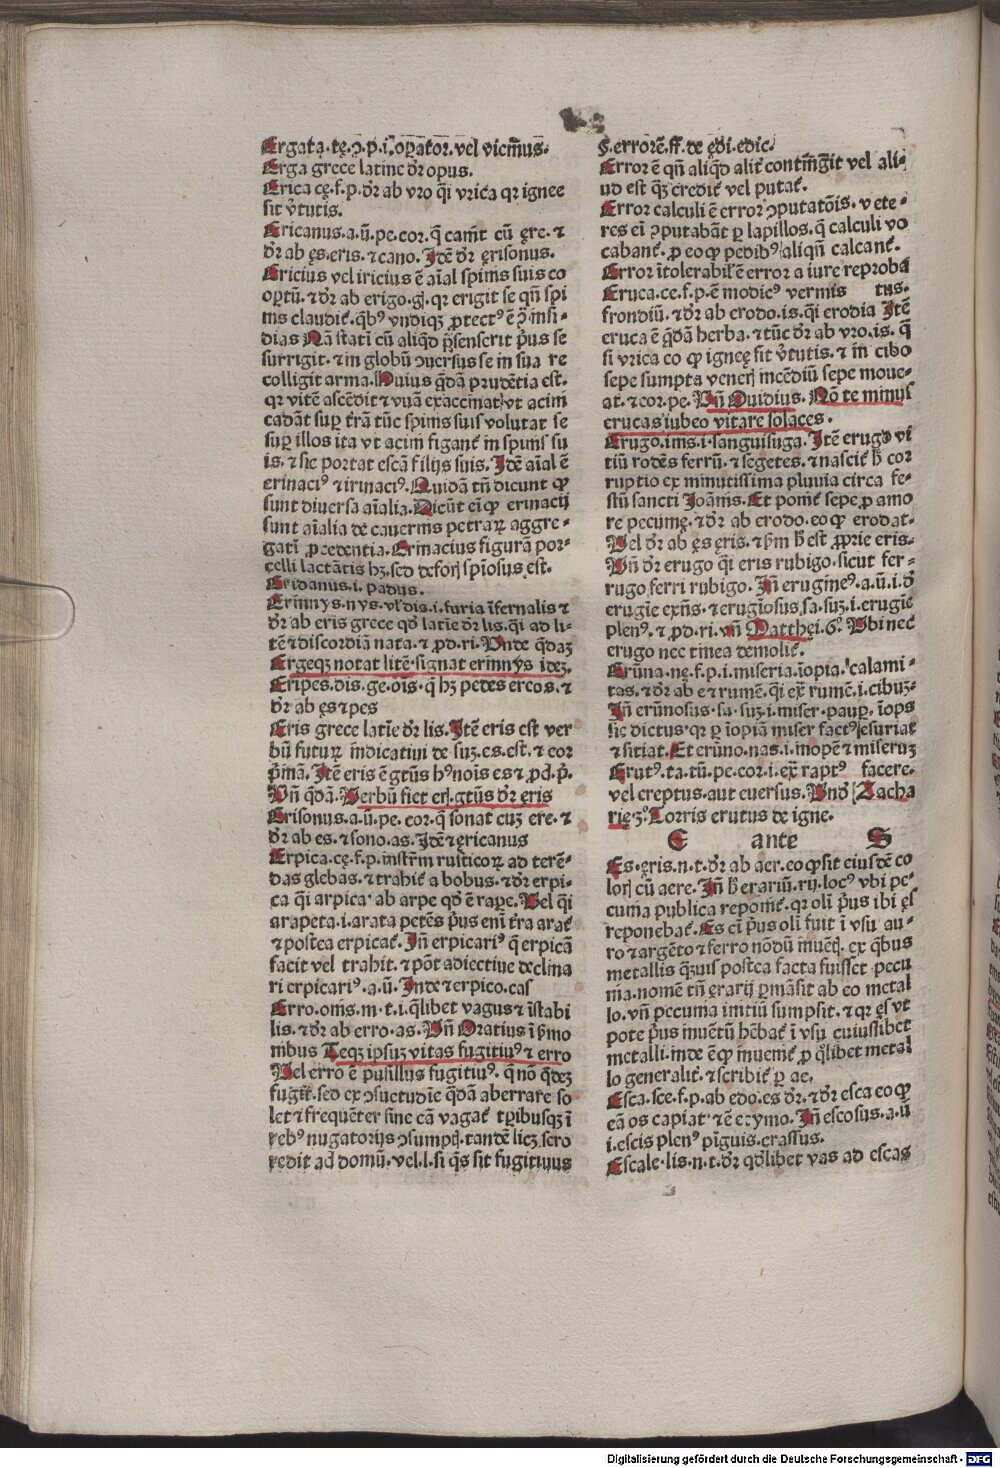 Ergata.tę.ↄ.p.i.oꝑator.vel vicinus.
Erga grece latine dr̄ opus.
Erica cę.f.p.dr̄ ab vro qi̅ vrica qr ignee
sit v̓tutis.
Ericanus.a.ū.pe.cor.q̄ canit cū ęre.⁊
dr̄ ab ęs.eris.⁊ cano. Idē dr̄ ęrisonus.
Ericius vel iricius ē aīal spinis suis co
oꝑtū.⁊ dr̄ ab erigo.gꝭ.qr erigit se qn̄ spi
nis claudit̄.qb̄ꝰ vndiqꝫ ꝓtectꝰ ē ꝯ̄ insi⸗
dias Nā stati cū aliqd̄ p̄senserit p̓us se
surrigit.⁊ in globū ↄuersus se in sua re
colligit arma. Huius q̄dā prudētia est.
qr vitē ascēdit ⁊ vuā exaccinat vt acini
cadāt suꝑ tr̄ā tūc spinis suis volutat se
suꝑ illos ita vt acini figant̄ in spinis su
is.⁊ sic portat escā filijs suis. Idē aīal ē
erinaciꝰ ⁊ irinaciꝰ. Quidā tn̄ dicunt ꝙ
sunt diuersa aīalia. Dicūt ei̅ ꝙ erinacij
sunt aīalia de cauernis petraꝝ aggre⸗
gati ꝓcedentia. Erinacius figurā por⸗
celli lactātis hꝫ.sed deforꝭ spiosus est.
Eridanus.i.padus.
Erinnys.nys.vl̄ dis.i.furia īfernalis ⁊
dr̄ ab eris grece qd̄ latīe dr̄ lis.qi̅ ad li⸗
tē ⁊ discordiā nata.⁊ ꝓd.ri. Vnde q̄daꝫ
Ergeqꝫ notat litē.signat erinnys ideꝫ.
Eripes.dis.ge.oīs.q̄ hꝫ pedes ereos.⁊
dr̄ ab ęs ⁊ pes
Eris grece latīe dr̄ lis. Itē eris est ver
bū futuꝝ indicatiui de suꝫ.es.est.⁊ cor
p̓mā. Itē eris ē gtūs hꝰ nois es ⁊ ꝓd.p̓.
Vn̄ q̄dā. Verbū fiet erꝭ.gtūs dr̄ ęris
Erisonus.a.ū.pe.cor.q̄ sonat cuꝫ ere.⁊
dr̄ ab es.⁊ sono.as. Idē ⁊ ęricanus
Erpica.cę.f.p.instr̄m rusticoꝝ ad terē⸗
das glebas.⁊ trahit̄ a bobus.⁊ dr̄ erpi⸗
ca qi̅ arpica ab arpe qd̄ ē raꝑe. Vel qi̅
arapeta.i.arata petēs p̓us eni̅ tr̄a arat̄
⁊ postea erpicat̄. In̄ erpicariꝰ q̄ erpicā
facit vel trahit.⁊ pōt adiectiue declina
ri erpicariꝰ.a.ū. Inde ⁊ erpico.cas
Erro.onis.m.t.i.qlibet vagus ⁊ īstabi
lis.⁊ dr̄ ab erro.as. Vn̄ Oratius i̅ s̓mo
nibus Teqꝫ ipsuꝫ vitas fugitiuꝰ ⁊ erro
Vel erro ē pusillus fugitiuꝰ.q̄ nō q̄deꝫ
fugit̄.sed ex ↄsuetudīe q̄dā aberrare so
let ⁊ frequēter sine cā vagat̄ tꝑibusqꝫ i̅
rebꝰ nugatorijs ↄsumptꝭ.tandē licꝫ sero
redit ad domū.vel.l.si q̄s sit fugitiuus
§.errorē.ff.de ędi.edic.
Error ē qn̄ aliqd̄ alit̓ contingit vel ali⸗
ud est qꝫ credit̄ vel putat̄.
Error calculi ē error ↄputatōis.vete⸗
res ei̅ ↄputabāt ꝑ lapillos.q̄ calculi vo
cabant̄.ꝓ eo ꝙ pedibꝰ aliqn̄ calcant̄.
Error ītolerabil̓ ē error a iure reproba
Eruca.ce.f.p.ē modicꝰ vermis tus.
frondiū.⁊ dr̄ ab erodo.is.qi̅ erodia Itē
eruca ē q̄dā herba.⁊ tūc dr̄ ab vro.is.q̄
si vrica eo ꝙ igneę sit v̓tutis.⁊ in cibo
sepe sumpta venerꝭ incēdiū sepe moue⸗
at.⁊ cor.pe. Vn̄ Ouidius. Nō te minus
erucas iubeo vitare solaces.
Erugo.inis.i.sanguisuga. Itē erugo vi
tiū rodēs ferrū.⁊ segetes.⁊ nascit̄ h̄ cor
ruptio ex minutissima pluuia circa fe⸗
stū sancti Joānis. Et ponit̄ sepe ꝓ amo
re pecunię.⁊ dr̄ ab erodo.eo ꝙ erodat.
Vel dr̄ ab ęs ęris.⁊ s̓m h̄ est ꝓprie eris.
Vn̄ dr̄ erugo qi̅ eris rubigo.sicut fer⸗
rugo ferri rubigo. In̄ erugineꝰ.a.ū.i.d̄
erugīe exn̄s.⁊ erugīosus sa.suꝫ.i.erugīe
plenꝰ.⁊ ꝓd.ri.vn̄ Matthęi.6° Vbi nec
erugo nec tinea demolit̄.
Erūna.nę.f.p.i.miseria.īopia.calami⸗
tas.⁊ dr̄ ab e ⁊ rumē.qi̅ ex̄ rumē.i.cibuꝫ.
In̄ erūnosus.sa.suꝫ.i.miser.pauꝑ.īops
sic dictus.qr ꝑ īopiā miser factꝰ esuriat
⁊ sitiat. Et erūno.nas.i.inopē ⁊ miseruꝫ
Erutꝰ.ta.tū.pe.cor.i.ex̄ raptꝰ facere.
vel ereptus.aut euersus. Vnd̄ Zacha
rię.3° Torris erutus de igne.
E ante S
Es.ęris.n.t.dr̄ ab aer.eo ꝙ sit eiusdē co
lorꝭ cū aere. In̄ h̄ erariū.rij.locꝰ vbi pe⸗
cunia publica reponit̄.qr oli̅ p̓us ibi ęs
reponebat̄. Es ei̅ p̓us oli̅ fuit i̅ vsu au⸗
ro ⁊ argēto ⁊ ferro nōdū inuētꝭ.ex qb̄us
metallis q̄ꝫuis postea facta fuisset pecu
nia.nomē tn̄ ęrarij ꝑmāsit ab eo metal
lo.vn̄ pecunia initiū sumpsit.⁊ qr ęs vt
pote p̓us inuētū hēbat̄ i̅ vsu cuiuslibet
metalli.inde ē ꝙ inuenit̄ ꝓ qlibet metal
lo generalit̓.⁊ scribit̄ ꝑ ae.
Esca.sce.f.p.ab edo.es dr̄.⁊ dr̄ esca eo ꝙ
eā os capiat.⁊ ē etymo. In̄ escosus.a.ū
i.escis plenꝰ pīguis.crassus.
Escale.lis.n.t.dr̄ qdlibet vas ad escas
Digitalisierung gefördert durch die Deutsche Forschungsgemeinschaft - DFG